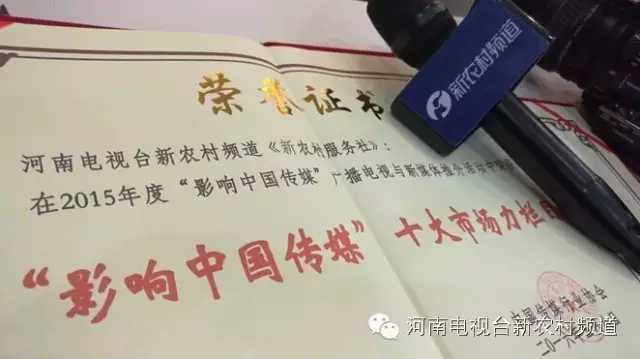 荣誉证书
新农村频道
河南电视台新农村频道《新农村服务社》：
在2015年度“影响中国传媒”广播电视与新媒体推介活动中荣
“影响中国传媒”十大市场力栏目
中国传媒行业协会
二〇一六年
河南电视台新农村频道